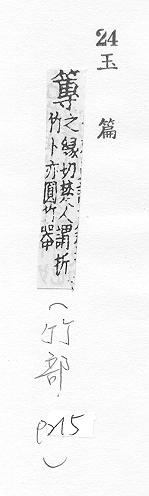 24
玉篇
篿之緣切楚人謂折
竹卜亦圓竹器
(竹部
P215)